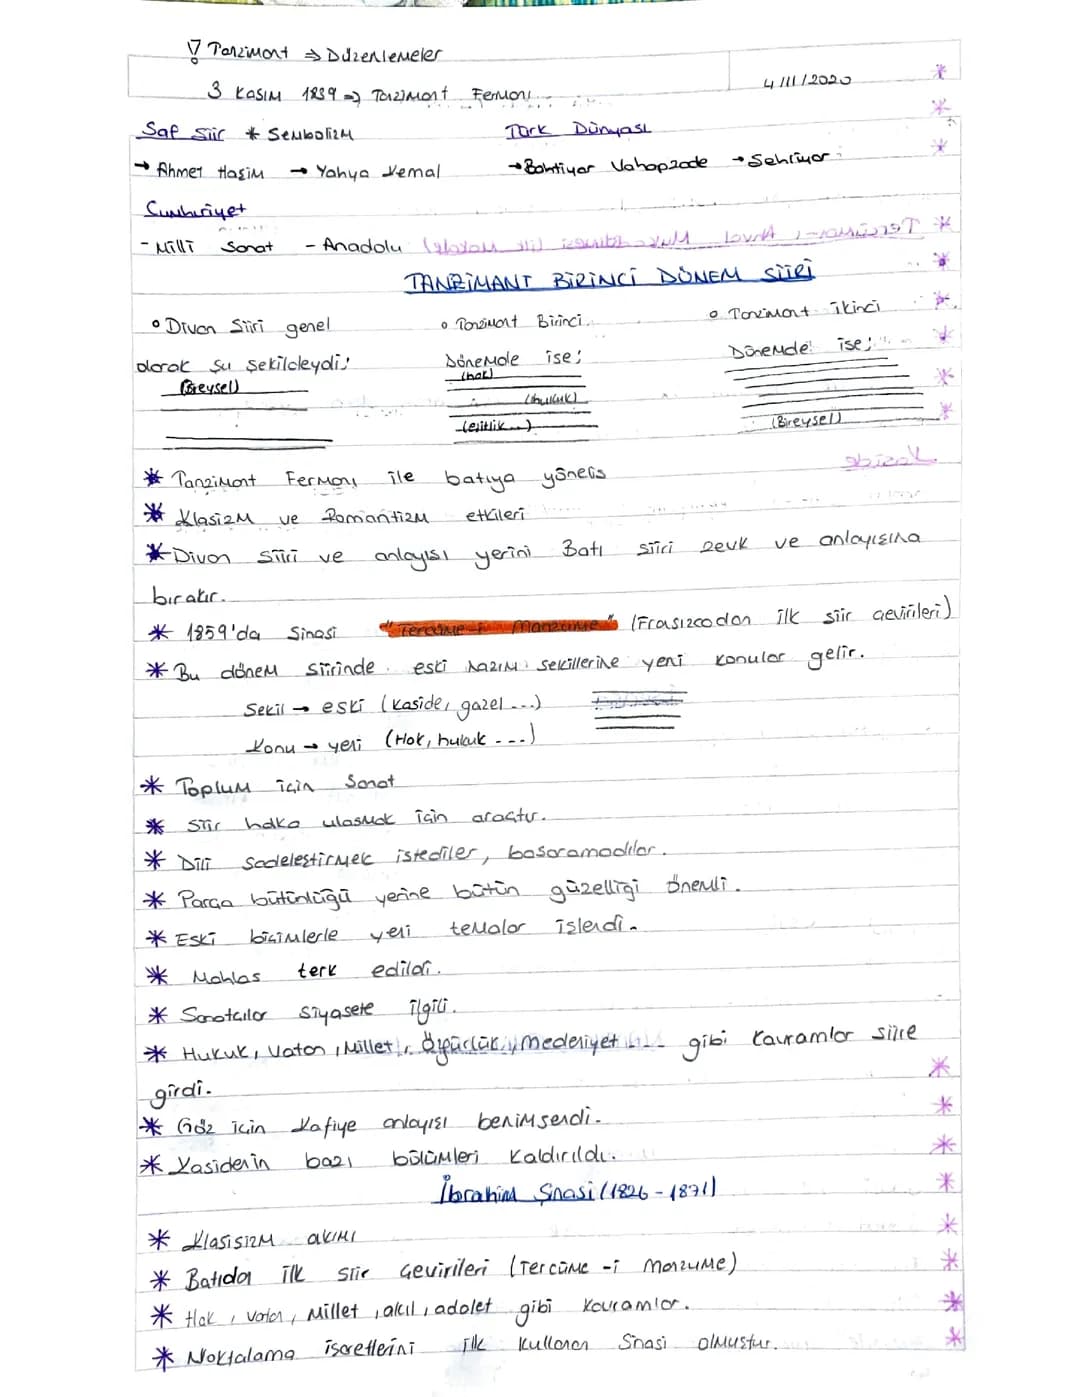 ! Tanzimant ⇒ Düzenlemeler
3 Kasım 1839 ⇒ Tanzimant Fermanı
4/11/2020
Saf Şiir * Sembolizm
Türk Dünyası
→ Ahmet Haşim → Yahya Kemal
→ Bahtiyar Vahapzade → Şehriyar
Cumhuriyet
- Milli Sanat - Anadolu
TANZİMANT BİRİNCİ DÖNEM ŞİİRİ
° Divan Şiiri genel
olarak şu şekildeydi:
(Bireysel)
° Tanzimant Birinci
Dönemde ise:
(hak)
(hukuk)
(eşitlik...)
° Tanzimant İkinci
Dönemde ise:
(Bireysel)
* Tanzimant Fermanı ile batıya yöneliş
* Klasizm ve Romantizm etkileri
* Divan şiiri ve anlayışı yerini Batı şiiri zevk ve anlayışına
bırakır.
* 1859'da Şinasi "Tercüme-i Manzume" (Frasızcadan ilk şiir çevirileri)
* Bu dönem şiirinde eski nazım şekillerine yeni konular gelir.
Şekil → eski (kaside, gazel ...)
Konu → yeni (Hak, hukuk ---)
* Toplum için Sanat
* Şiir halka ulaşmak için araçtır.
* Dili sadeleştirmek istediler, başaramadılar.
* Parça bütünlüğü yerine bütün güzelliği önemli.
* Eski biçimlerle yeni temalar işlendi.
* Mahlas terk edildi.
* Sanatçılar siyasete ilgili.
* Hukuk, Vatan, Millet, Özgürlük, Medeniyet gibi kavramlar şiire
girdi.
* Göz için kafiye anlayışı benimsendi.
* Kasidenin bazı bölümleri kaldırıldı.
İbrahim Şinasi (1826 - 1871)
* Klasisizm akımı
* Batıdan ilk şiir çevirileri (Tercüme -i Manzume)
* Hak, vatan, Millet, akıl, adalet gibi kavramlar.
* Noktalama işaretlerini ilk kullanan Şinasi olmuştur.